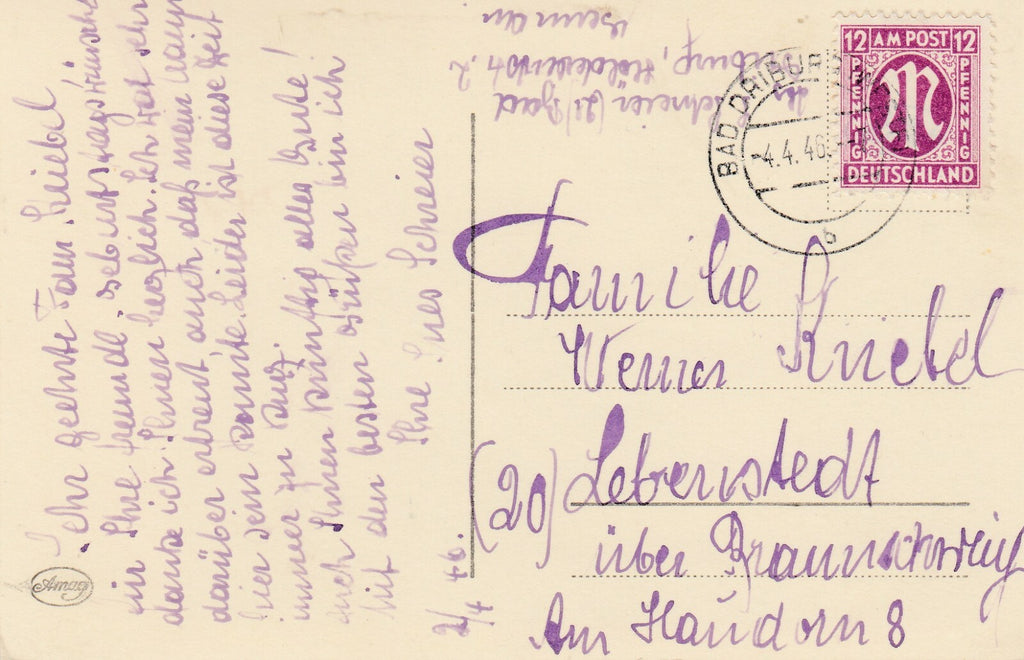 Sehr geehrte Frau Knebel
für Ihre freundl. Geburtstagswünsche
danke ich Ihnen herzlich. Ich hab sehr
darüber erfreut auch daß mein
hier sein konnte. Leider ist diese Zeit
immer zu kurz.
auch Ihnen künftig alles Gute!
Mit den besten Grüßen bin ich
Ihre Ines Schreier
2/4 46.
Amag
Schreier (21) Bad
Driburg,
BAD DRIBURG
-4.4.46.
b
12 AM POST 12
PFENNIG
PFENNIG
DEUTSCHLAND
Familie
Werner Knebel
(20) Lebenstedt
über Braunschweig
Am Haudorn 8